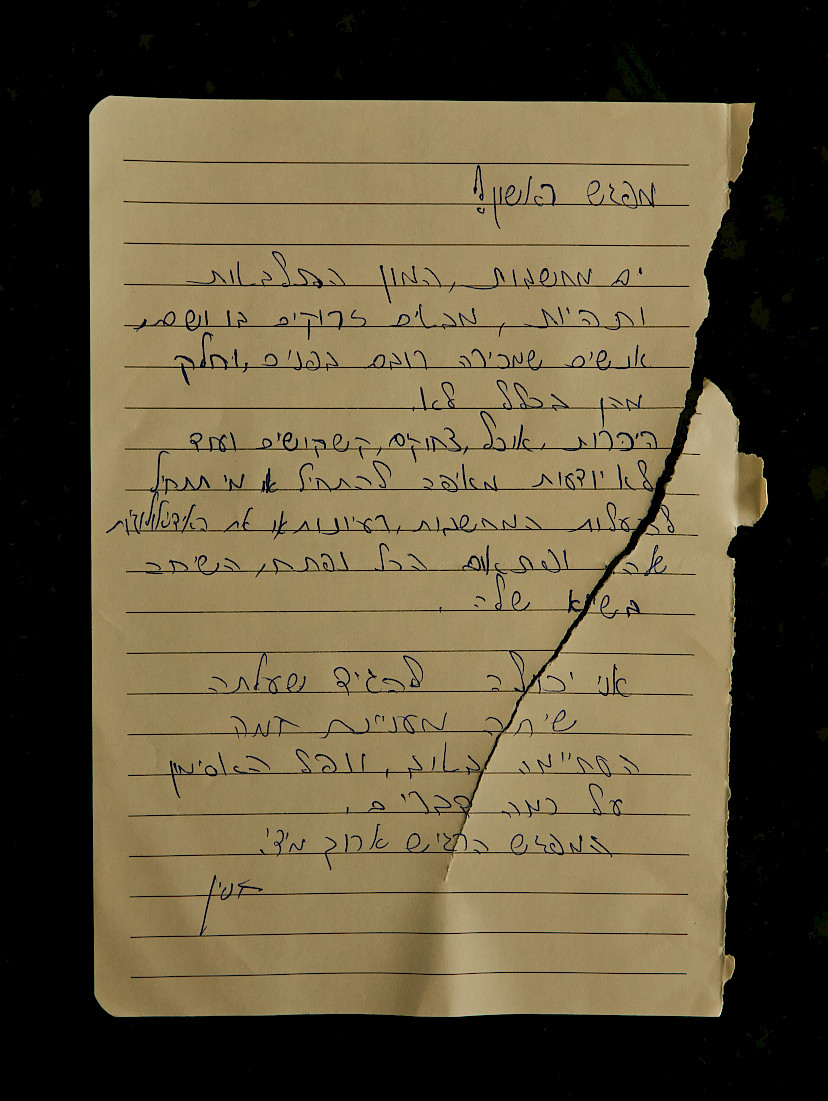 מפגש ראשון!
ים מחשבות, המון התלבטות
ותהיות, מבטים זרוקים בו ושם,
אנשים שמכירה רובם בפנים, וחלק
מהן בכלל לא.
היכרות, אוכל, צחוקים, קשקושים ועוד
לא יודעות מאיפה להתחיל או מי תתחיל
להעלות המחשבות, רעיונות או את האידאולוגיות
שלה, ופתאום הכל נפתח, השיחה
בשיא שלה.
אני יכולה להגיד שעלתה
שיחה מעניינת
הסתיימה בטוב, ונפל האסימון
על כמה דברים.
המפגש הרגיש ארוך מידי.